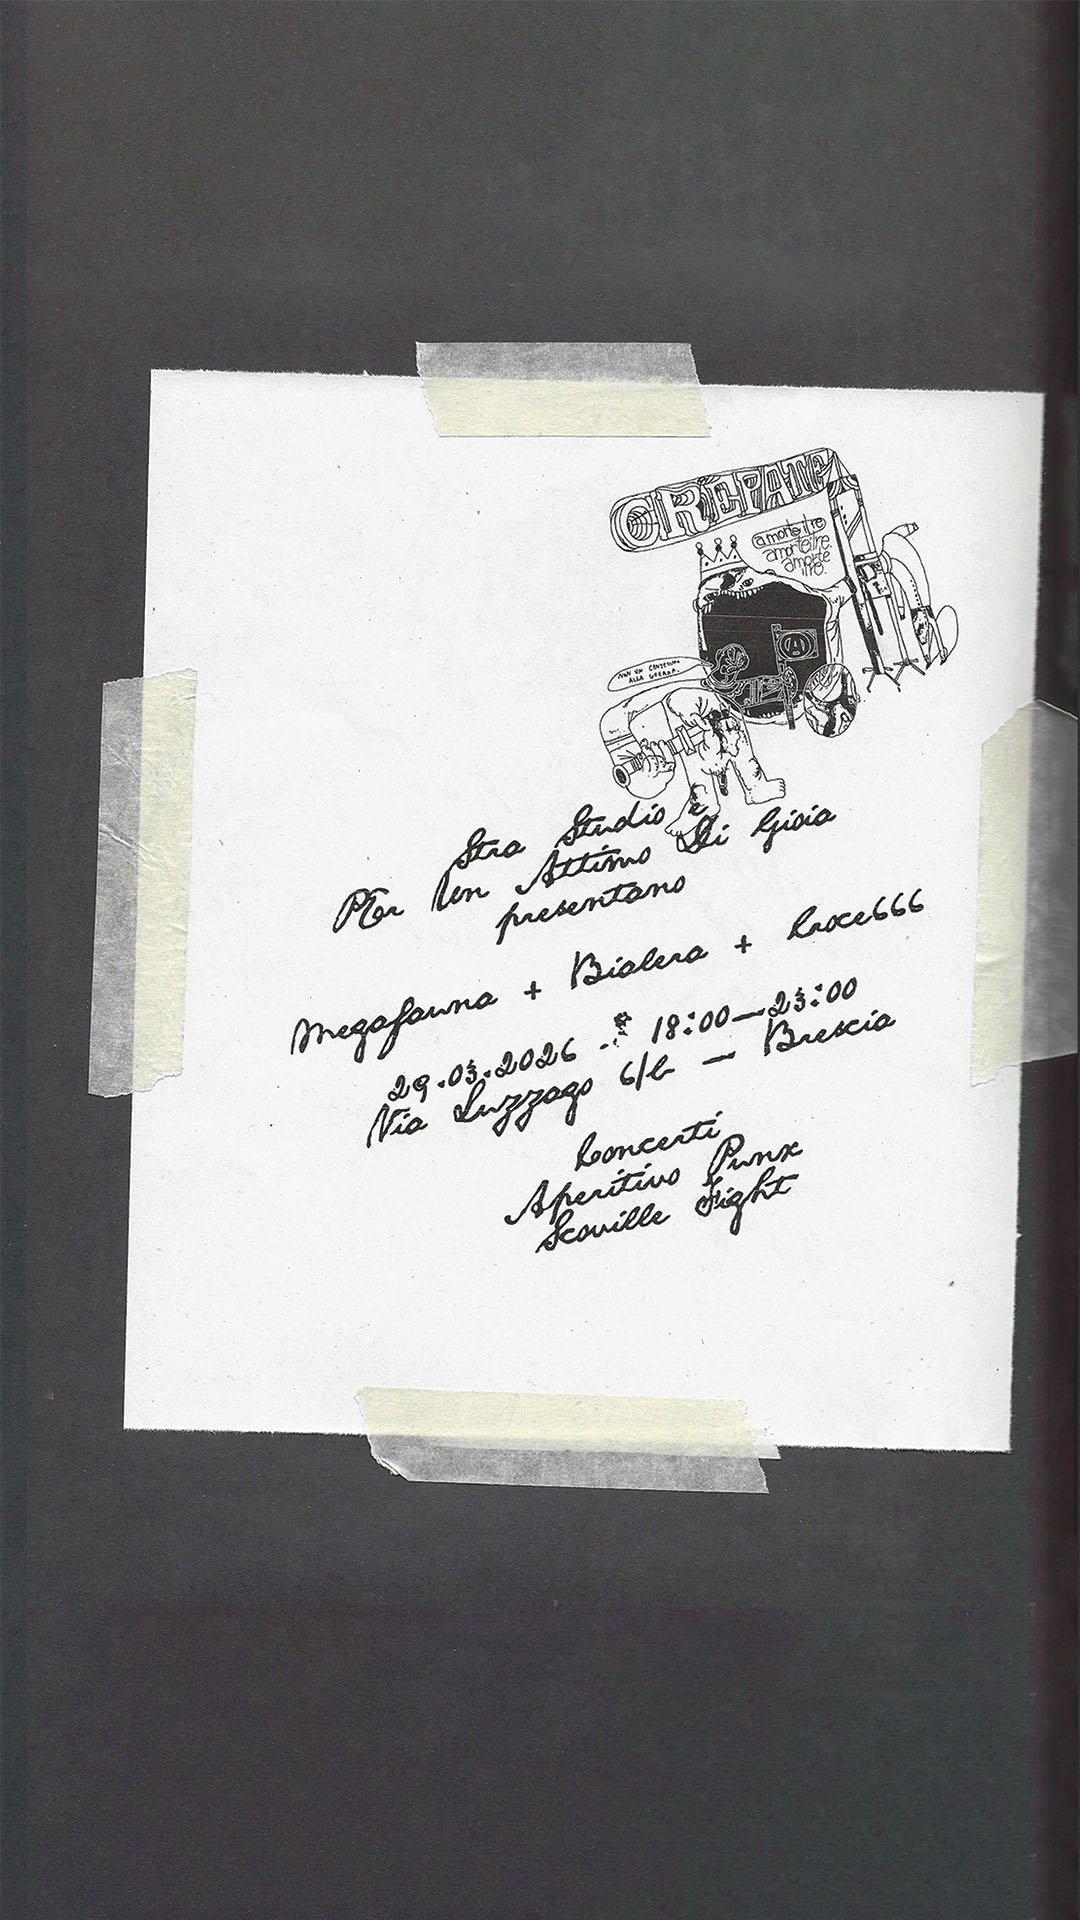 CREPATE
a morte i re
a morte i re
a morte
i re.
NON UN CENTESIMO
ALLA GUERRA.
Stra Studio e
PEr Un Attimo Di Gioia
presentano
Megafauna + Bialera + Croce666
29.03.2026 18:00—23:00
Via Luzzago 6/b — Brescia
Concerti
Aperitivo Punx
Scoville Fight